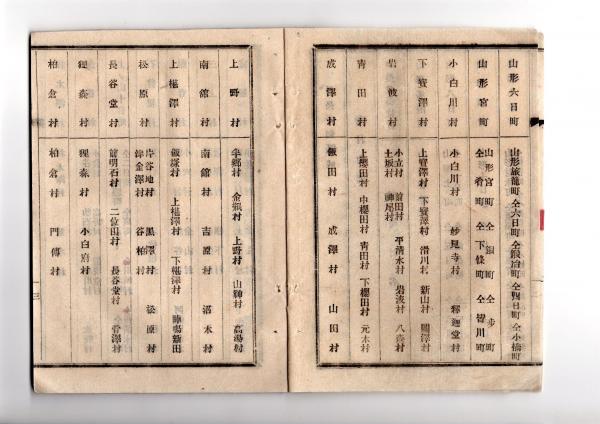 山形六日町 山形旅籠町 仝六日町 仝鍛冶町 仝四日町 仝小橋町
山形宮町 山形宮町 仝銀町 仝歩町 仝肴町 仝下條町 仝皆川町
小白川村 小白川村 妙見寺村 釋迦堂村
下寶澤村 上寶澤村 下寶澤村 滑川村 新山村 關澤村
岩波村 小立村 前田村 平清水村 岩波村 八森村 土坂村 神尾村
青田村 上櫻田村 中櫻田村 青田村 下櫻田村 元木村
成澤村 飯田村 成澤村 山田村
上野村 半郷村 金瓶村 上野村 山神村 高湯村
南舘村 南舘村 吉原村 沼木村
上椹澤村 飯塚村 上椹澤村 下椹澤村 陣場新田
松原村 片谷地村 黒澤村 松原村 津金澤村 谷柏村
長谷堂村 前明石村 二位田村 長谷堂村 菅澤村
狸森村 狸森村 小白府村
柏倉村 柏倉村 門傳村
三